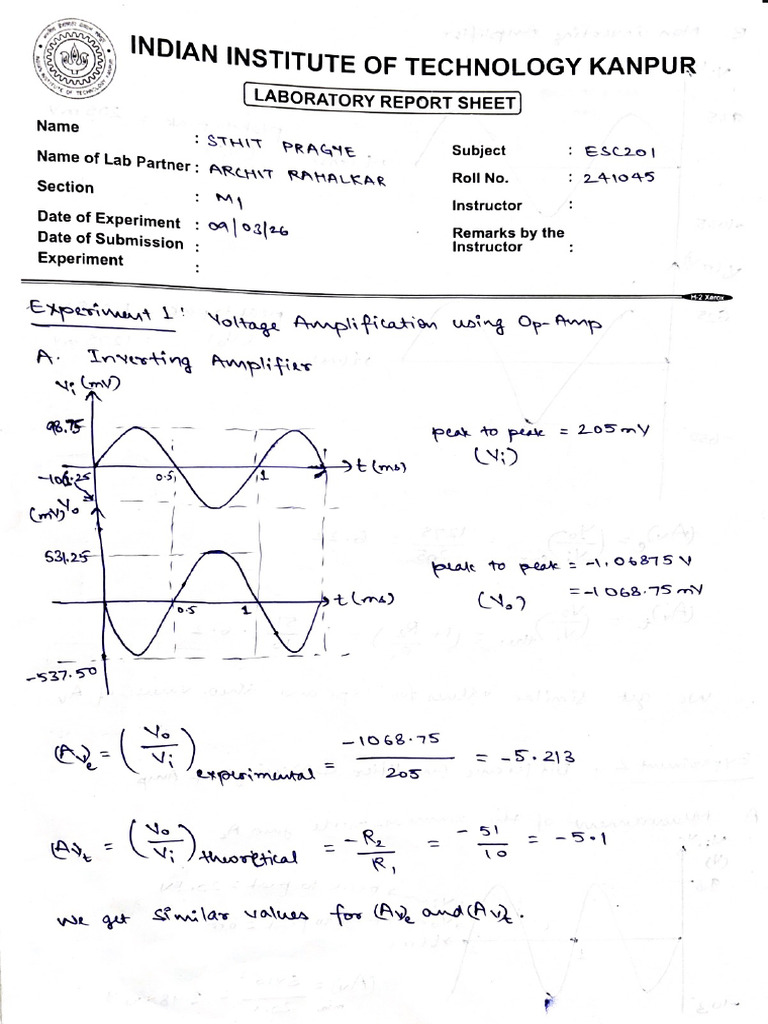 INDIAN INSTITUTE OF TECHNOLOGY KANPUR
LABORATORY REPORT SHEET
Name : STHIT PRAGYE.
Name of Lab Partner : ARCHIT RAHALKAR
Section : M1
Date of Experiment : 09/03/26
Date of Submission :
Experiment :
Subject : ESC201
Roll No. : 241045
Instructor :
Remarks by the
Instructor :
H-2 Xerox
Experiment 1: Voltage Amplification using Op-Amp
A. Inverting Amplifier
Vi (mV)
98.75
0.5
1
t (ms)
-106.25
peak to peak = 205 mV
(Vi)
Vo
(mV)
531.25
0.5
1
t (ms)
-537.50
peak to peak = -1.06875 V
(Vo) = -1068.75 mV
(Av)e = (Vo/Vi) experimental = -1068.75/205 = -5.213
(Av)t = (Vo/Vi) theoretical = -R2/R1 = -51/10 = -5.1
We get similar values for (Av)e and (Av)t.